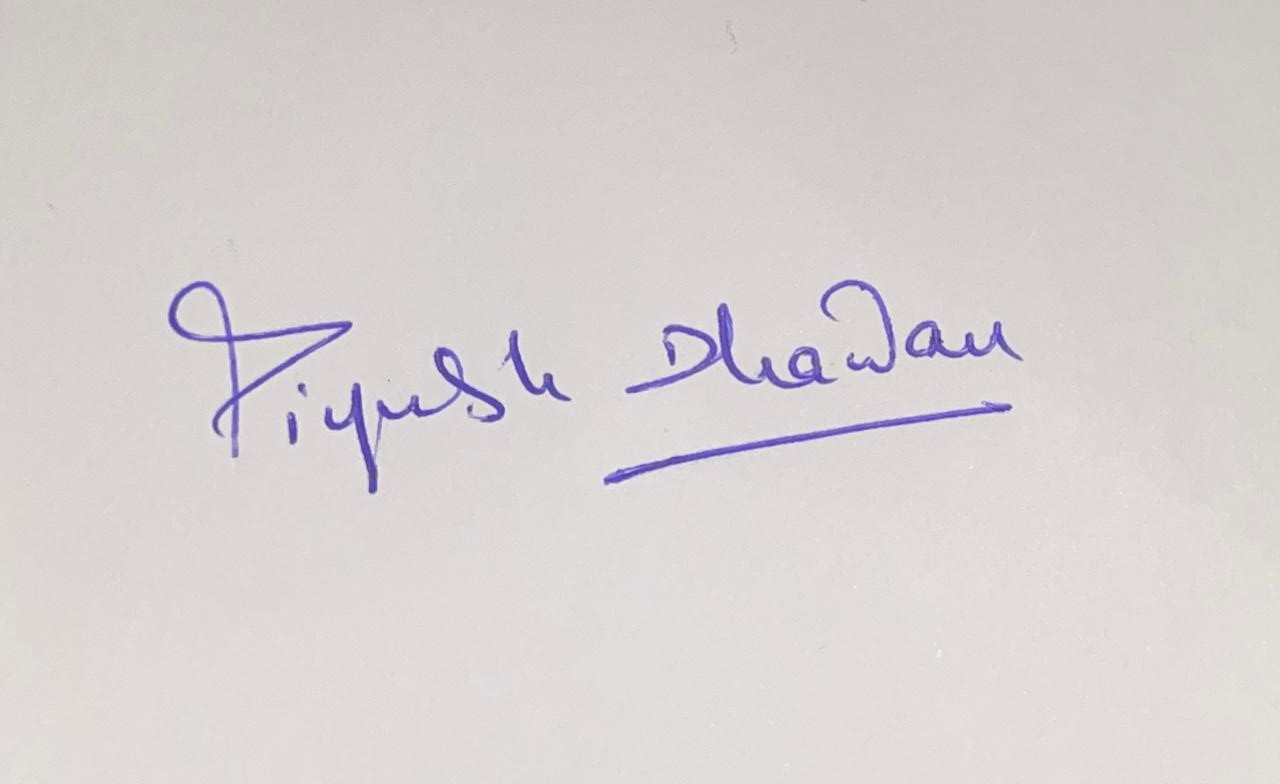 Piyush Dhawan